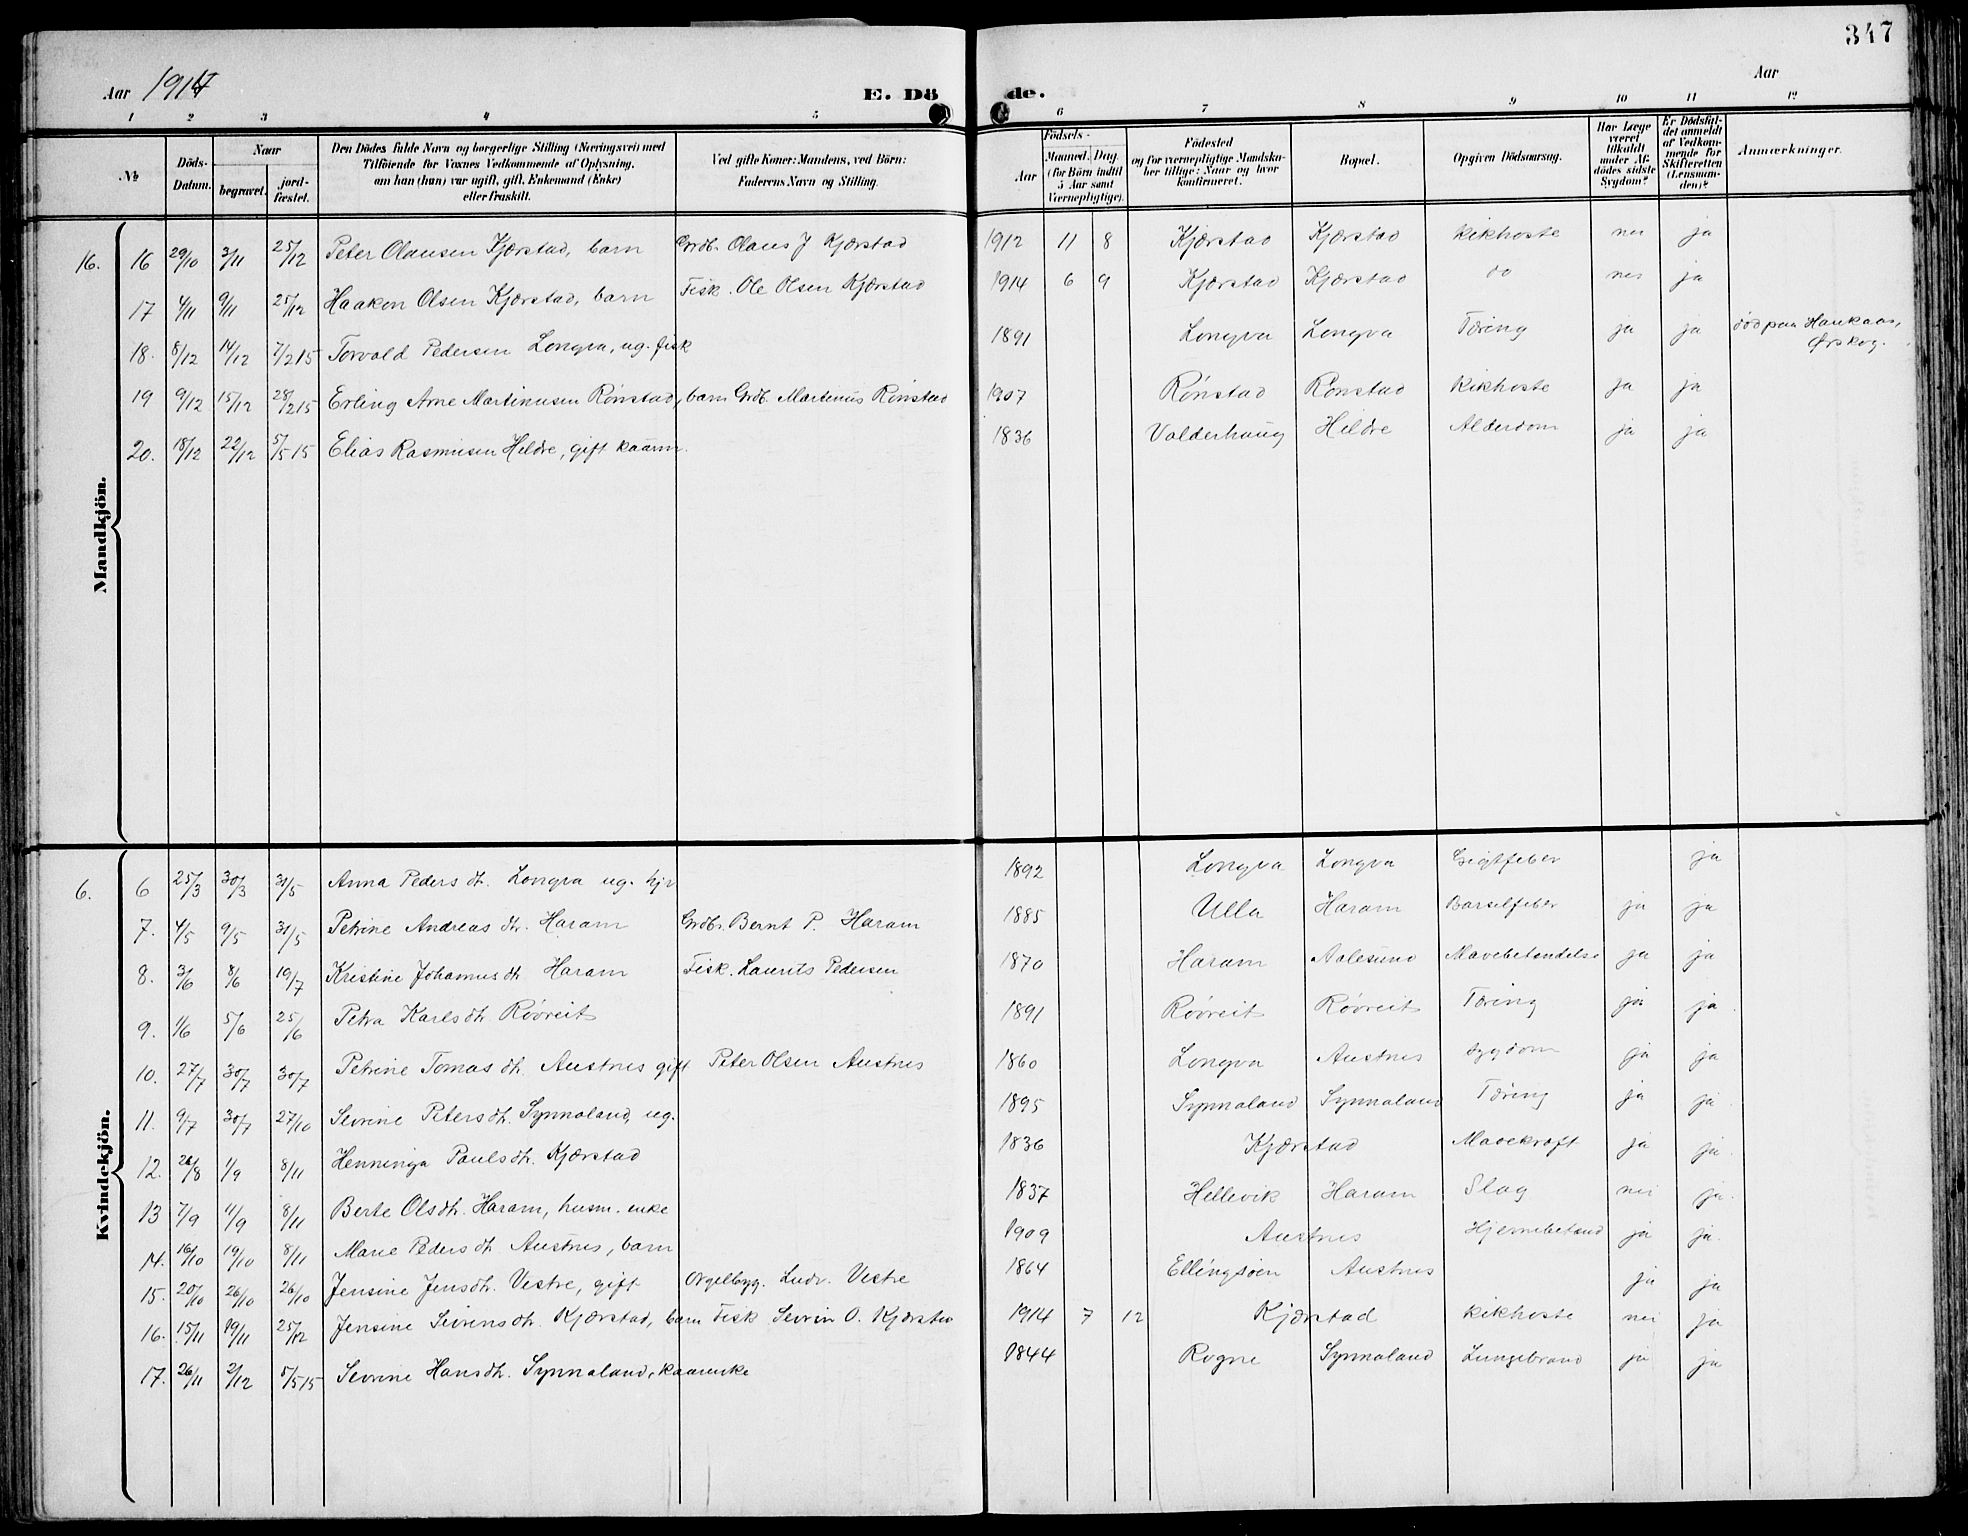 347
Aar 1914
E. Dö de.
Aar
1 2 3 4 5 6 7 8 9 10 11 12
No
Döds-Datum.
Naar
begravet.
jord-fæstet.
Den Dödes fulde Navn og borgerlige Stilling (Næringsvei) med
Tilföiende for Voxnes Vedkommende af Oplysning,
om han (hun) var ugift, gift, Enkemand (Enke)
eller fraskilt.
Ved gifte Koner: Mandens, ved Börn:
Faderens Navn og Stilling.
Födsels-
Aar
Maaned. Dag.
(for Börn indtil
5 Aar samt
Værnepligtige).
Födested
og for værnepligtige Mandska-
ber tillige: Naar og hvor
konfirmeret.
Bopæl.
Opgiven Dödsaarsag.
Har Læge
været
tilkaldt
under Af-
dödes sidste
Sygdom?
Er Dödsfal-
det anmeldt
af Vedkom-
mende for
Skifteretten
(Lensman-
den)?
Anmærkninger.
Mandkjön.
16. 16 29/10 3/11 25/12 Peter Olausen Kjærstad, barn Grdb. Olaus J Kjærstad 1912 11 8 Kjærstad Kjærstad Kikhoste nei ja
17 4/11 9/11 25/12 Haakon Olsen Kjærstad, barn Fisk. Ole Olsen Kjærstad 1914 6 9 Kjærstad Kjærstad do nei ja
18. 8/12 14/12 7/2 15 Torvald Pedersen Longva, ug. fisk 1891 Longva Longva Tæring ja ja død paa Haukaas,
Ørskog.
19 9/12 15/12 28/2 15 Erling Arne Martinusen Rönstad, barn Grdb. Martinus Rönstad 1907 Rönstad Rönstad Kikhoste ja ja
20. 18/12 22/12 5/5 15 Elias Rasmusen Hildre, gift kaarm. 1836 Valderhaug Hildre Alderdom ja ja
Kvindekjön.
6. 6 25/3 30/3 31/5 Anna Pedersdt. Longva ug. hjv 1892 Longva Longva Gigtfeber ja
7. 4/5 9/5 31/5 Petrine Andreasdtr. Haram Grdbr. Bernt P. Haram 1885 Ulla Haram Barselfeber ja ja
8. 3/6 8/6 19/7 Kristine Johannesdt Haram Fisk. Laurits Pedersen 1870 Haram Aalesund Mavebetændelse ja ja
9. 1/6 5/6 25/6 Petra Karlsdtr Röoreit 1891 Röoreit Röoreit Tæring ja ja
10. 27/7 30/7 30/7 Petrine Tomasdt. Austnes gift Peter Olsen Austnes 1860 Longva Austnes sygdom ja ja
11. 9/7 30/7 27/10 Sevrine Petersdt. Synnaland, ug. 1895 Synnaland Synnaland Tæring ja ja
12. 26/8 1/9 8/11 Henninga Paulsdt. Kjærstad 1836 Kjærstad Mavekræft ja ja
13 7/9 11/9 8/11 Berte Olsdtr. Haram, husm. enke 1837 Hellevik Haram Slag nei ja
14. 16/10 19/10 8/11 Marie Pedersdt Austnes, barn 1909 Austnes Hjernebetænd ja ja
15. 20/10 26/10 26/10 Jensine Jensdtr. Vestre, gift Orgelbyg. Ludv. Vestre 1864 Ellingsöen Austnes ja ja
16. 15/11 19/11 25/12 Jensine Sevrinsdtr. Kjærstad, barn Fisk Sevrin O. Kjærstad 1914 7 12 Kjærstad Kikhoste nei ja
17. 26/11 2/12 5/5 15 Sevrine Hansdtr. Synnaland, kaarenke 1844 Rogne Synnaland Lungebrand ja ja